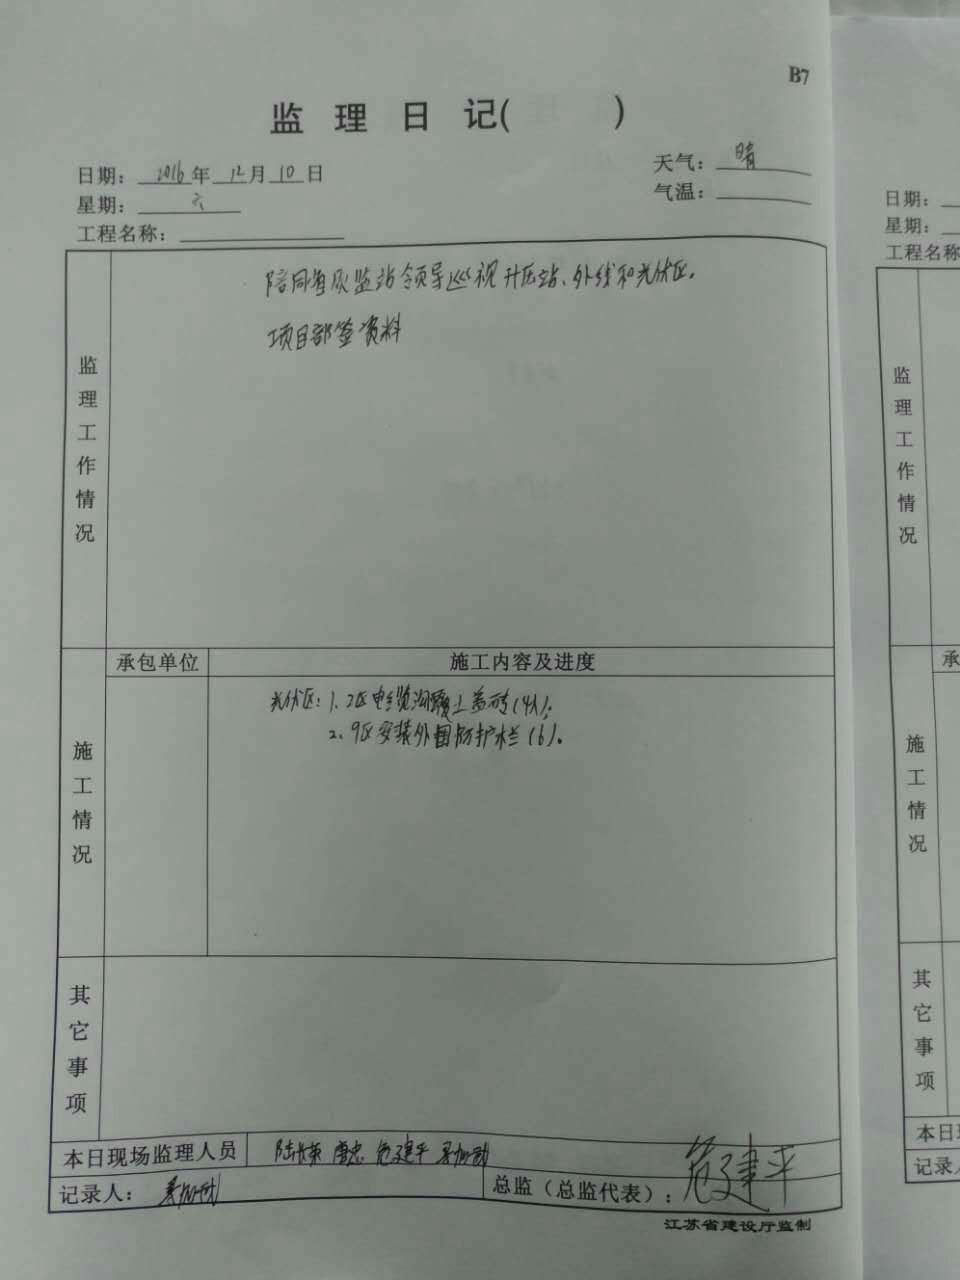 B7
监 理 日 记( )
日期: 2016年 12月 10日
天气: 晴
星期: 六
气温:
工程名称:
监理工作情况
陪同省质监站领导巡视升压站、外线和光伏区。
项目部签资料
承包单位
施工内容及进度
施工情况
光伏区: 1、2区电缆沟覆土盖砖(4人);
2、9区安装外围防护栏(6)。
其它事项
本日现场监理人员
危建平
记录人:
总监(总监代表): 危建平
江苏省建设厅监制
日期:
星期:
工程名称
监理工作情况
承
施工情况
其它事项
本日
记录人